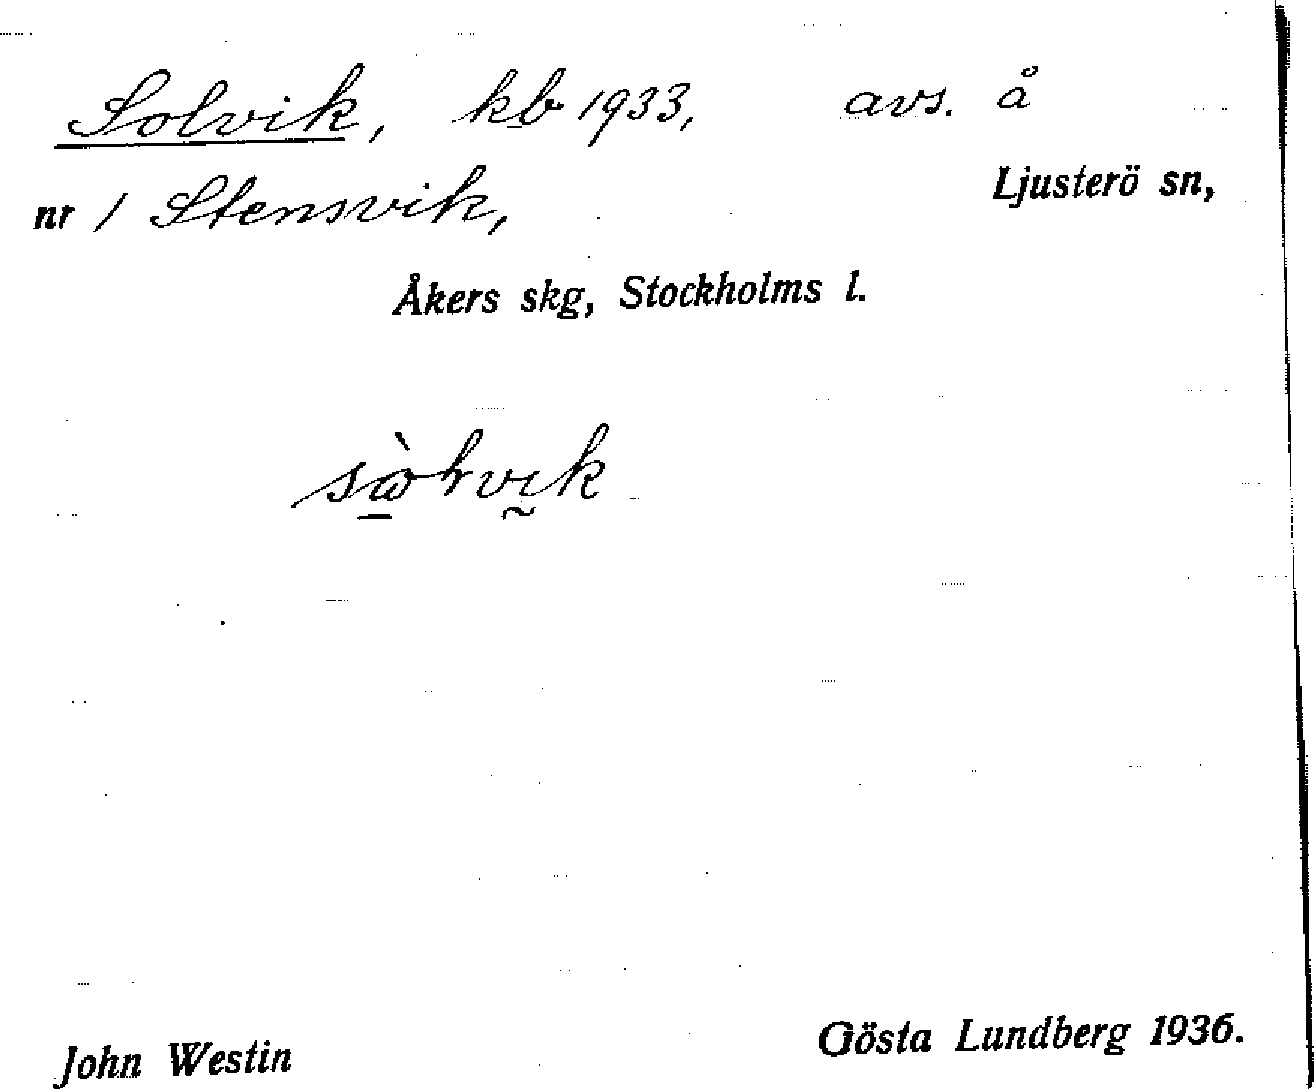 Solvik, kb 1933, avs. å
nr 1 Stensvik, Ljusterö sn,
Åkers skg, Stockholms l.
John Westin Gösta Lundberg 1936.